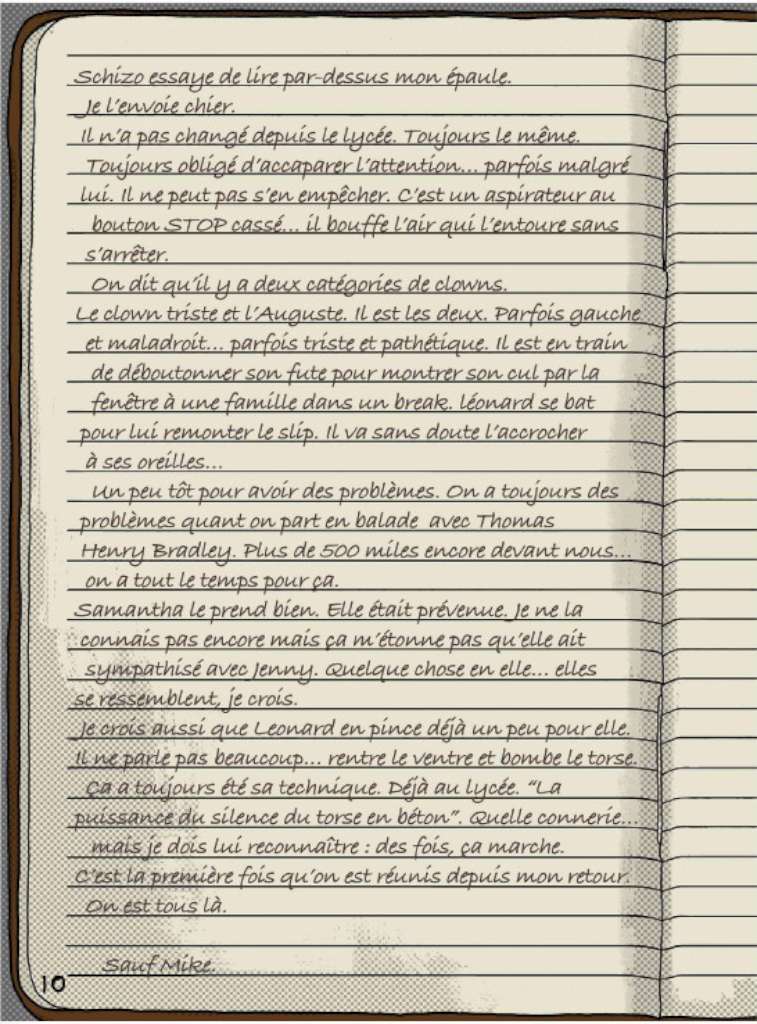 Schizo essaye de lire par-dessus mon épaule.
Je l'envoie chier.
Il n'a pas changé depuis le lycée. Toujours le même.
Toujours obligé d'accaparer l'attention... parfois malgré
lui. Il ne peut pas s'en empêcher. C'est un aspirateur au
bouton STOP cassé... il bouffe l'air qui l'entoure sans
s'arrêter.
On dit qu'il y a deux catégories de clowns.
Le clown triste et l'Auguste. Il est les deux. Parfois gauche
et maladroit... parfois triste et pathétique. Il est en train
de déboutonner son fute pour montrer son cul par la
fenêtre à une famille dans un break. léonard se bat
pour lui remonter le slip. Il va sans doute l'accrocher
à ses oreilles...
Un peu tôt pour avoir des problèmes. On a toujours des
problèmes quant on part en balade avec Thomas
Henry Bradley. Plus de 500 miles encore devant nous...
on a tout le temps pour ça.
Samantha le prend bien. Elle était prévenue. Je ne la
connais pas encore mais ça m'étonne pas qu'elle ait
sympathisé avec Jenny. Quelque chose en elle... elles
se ressemblent, je crois.
Je crois aussi que Leonard en pince déjà un peu pour elle.
Il ne parle pas beaucoup... rentre le ventre et bombe le torse.
Ça a toujours été sa technique. Déjà au lycée. "La
puissance du silence du torse en béton". Quelle connerie...
mais je dois lui reconnaître : des fois, ça marche.
C'est la première fois qu'on est réunis depuis mon retour.
On est tous là.
Sauf Mike.
10